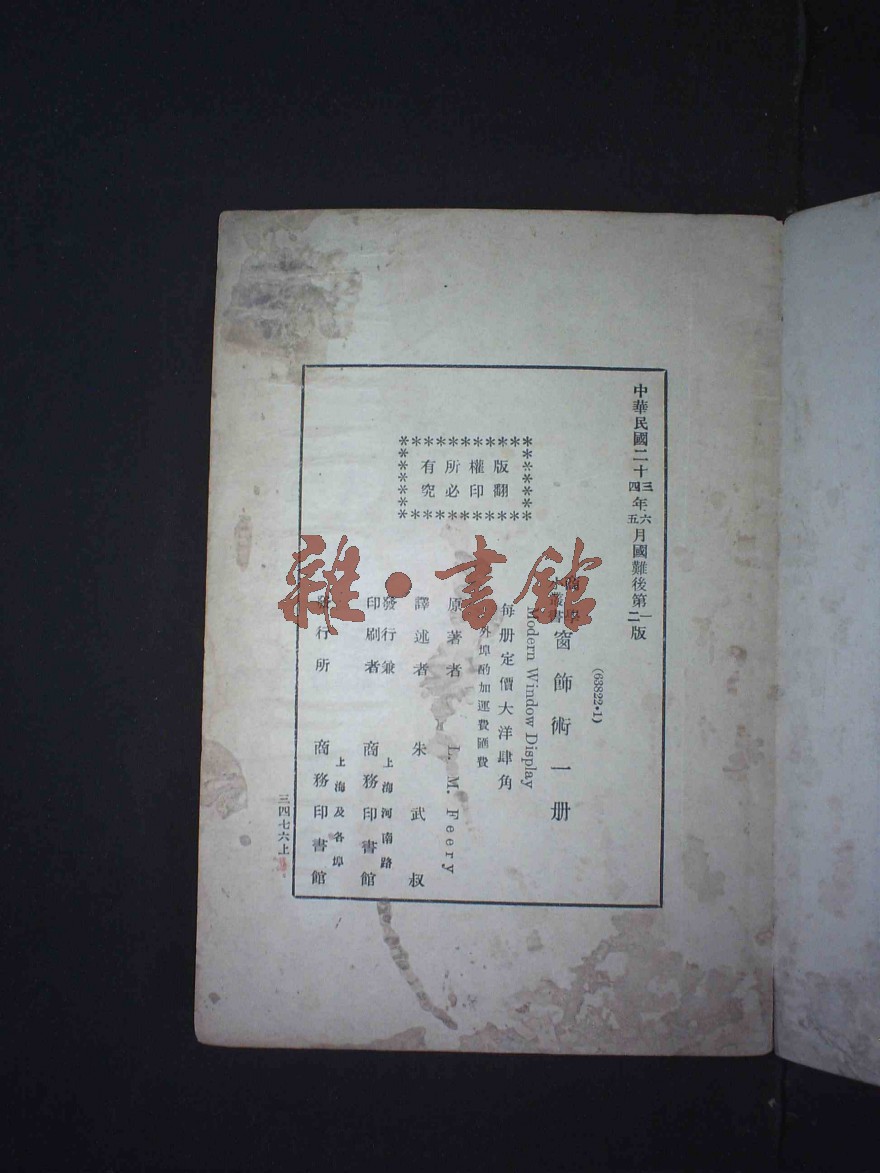 中華民國二十三四年六五月國難後第一二版
(63822•1)
商學
小叢書
窗飾術一册
Modern Window Display
每册定價大洋肆角
外埠酌加運費匯費
版權所有
翻印必究
原著者 L. M. Feery
譯述者 朱武叔
發行兼
印刷者
上海河南路
商務印書館
發行所
上海及各埠
商務印書館
三四七六上
雜•書館